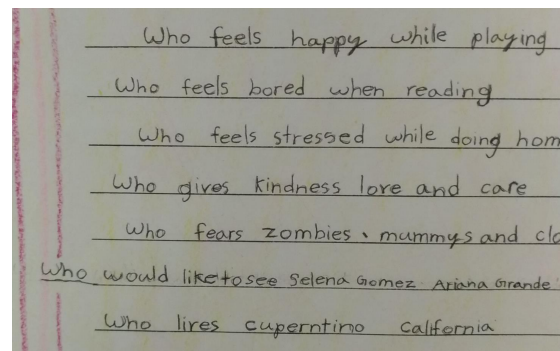 Who feels happy while playing
Who feels bored when reading
Who feels stressed while doing hom
Who gives kindness love and care
Who fears zombies、mummys and clo
Who would like to see Selena Gomez Ariana Grande
Who lires cuperntino California